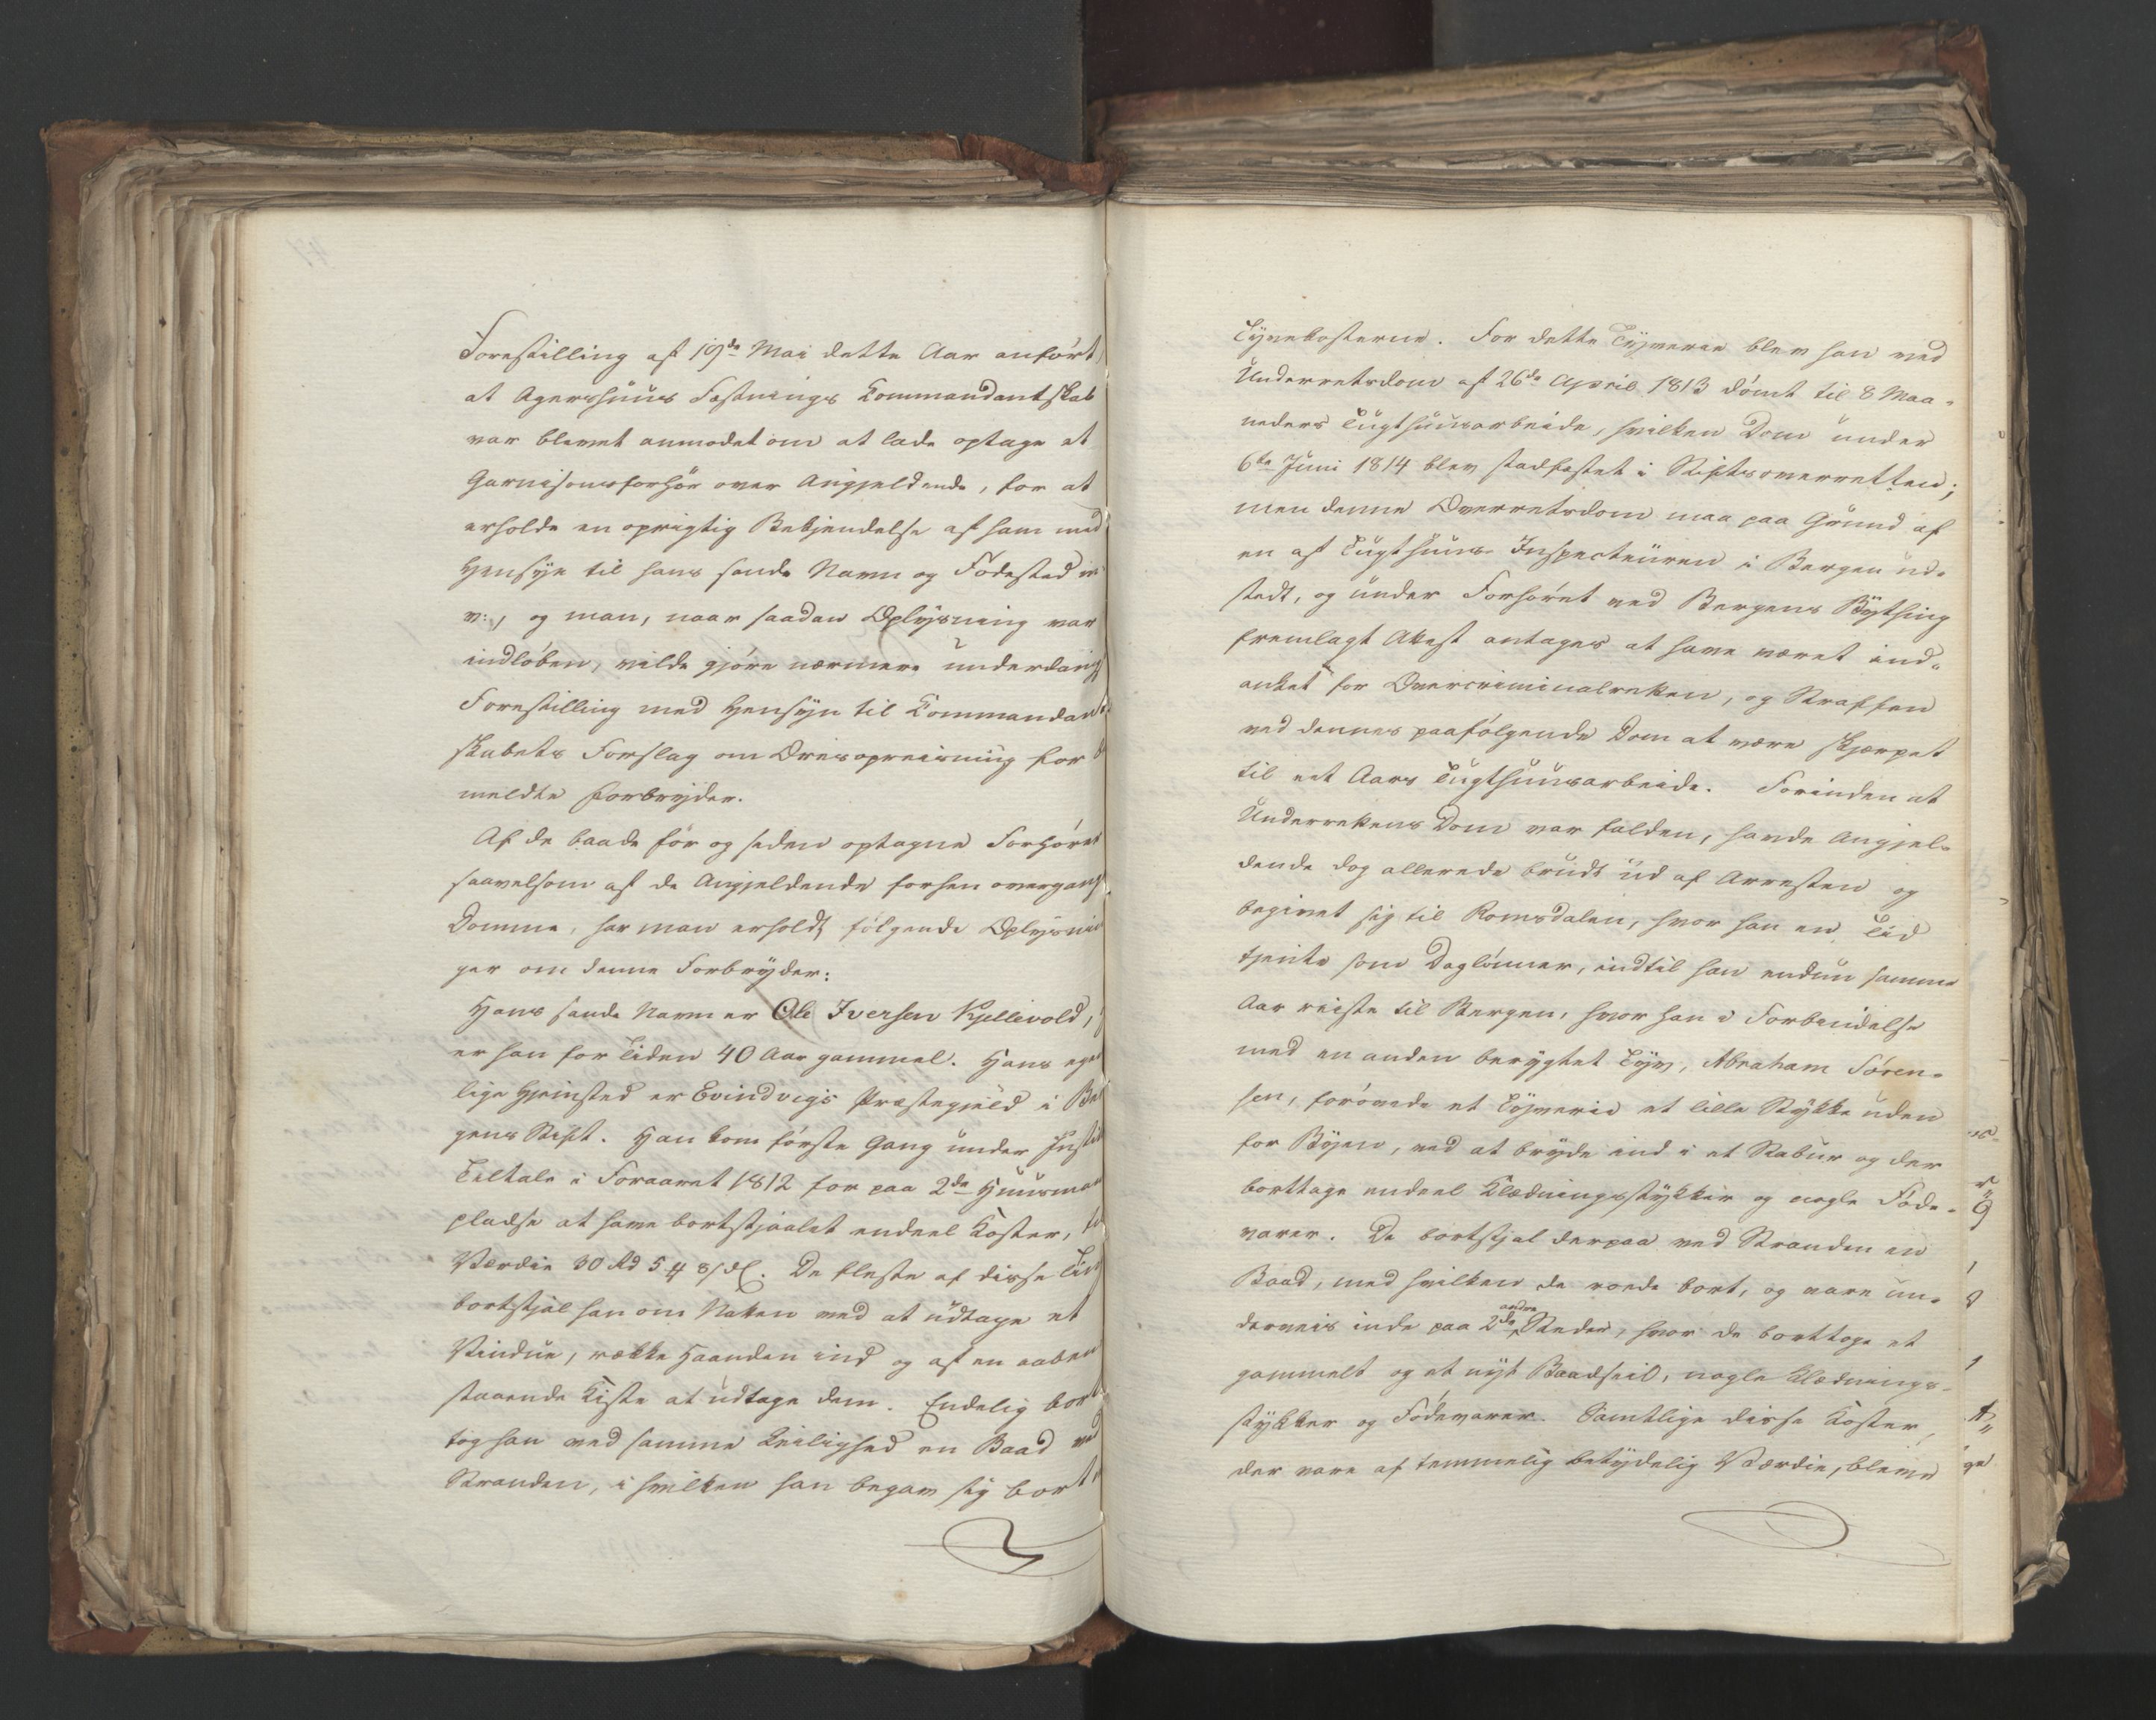 Forestilling af 19de Mai dette Aar anført,
at Agershuus Festnings Kommandantskab
var blevet anmodet om at lade optage et
Garnisonsforhör over Angjeldende, for at
erholde en oprigtig Bekjendelse af ham med
Hensyn til hans sande Navn og Födested m:
v:, og man, naar saadan Oplysning var
indløben, vilde gjøre nærmere underdanig
Forestilling med Hensyn til Kommandant
skabets Forslag om Æresopreisning for
meldte Forbryder.
Af de baade før og siden optagne Forhører
saavelsom af de Angjeldende forhen overgang
Domme, har man erholdt følgende Oplysnin
ger om denne Forbryder:
Hans sande Navn er Ole Iversen Kjellevold,
er han for Tiden 40 Aar gammel. Hans egent
lige Hjemsted er Evindvigs Præstegjeld i Ber
gens Stift. Han kom første Gang under Justits
Tiltale i Foraaret 1812 for paa 2de Huusmand
pladse at have bortstjaalet endeel Koster, til
Værdie 30 Rd 5 # 8 s. De fleste af disse Ting
bortstjal han om Natten ved at udtage et
Vindue, række Haanden ind og af en aaben
staaende Kiste at udtage dem. Endelig bort
tog han ved samme Leilighed en Baad ved
Stranden, i hvilken han begav sig bort
Tyvekosterne. For dette Tyverie blev han ved
Underretsdom af 26de April 1813 dömt til 8 Maa-
neders Tugthuusarbeide, hvilken Dom under
6te Juni 1814 blev stadfestet i Stiftsoverretten;
men denne Overretsdom maa paa Grund af
en af Tugthuus-Inspecteuren i Bergen ud-
stedt, og under Forhøret ved Bergens Bything
fremlagt Attest antages at have været ind-
anket for Overcriminalretten, og Straffen
ved dennes paafølgende Dom at være skjærpet
til eet Aars Tugthuusarbeide. Forinden at
Underrettens Dom var falden, havde Angjel-
dende dog allerede brudt ud af Arresten og
begivet sig til Romsdalen, hvor han en Tid
tjente som Daglönner, indtil han endnu samme
Aar reiste til Bergen, hvor han i Forbindelse
med en anden berygtet Tyv, Abraham Sören-
sen, forøvede et Tyverie et lille Stykke uden
for Byen, ved at bryde ind i et Stabur og der
borttage endeel Klædningsstykker og nogle Föde-
varer. De bortstjal derpaa ved Stranden en
Baad, med hvilken de roede bort, og vare un-
derveis inde paa 2de andre Steder, hvor de borttoge et
gammelt og et nyt Baadseil, nogle Klædnings-
stykker og Födevarer. Samtlige disse Koster,
der vare af temmelig betydelig Værdie, bleve